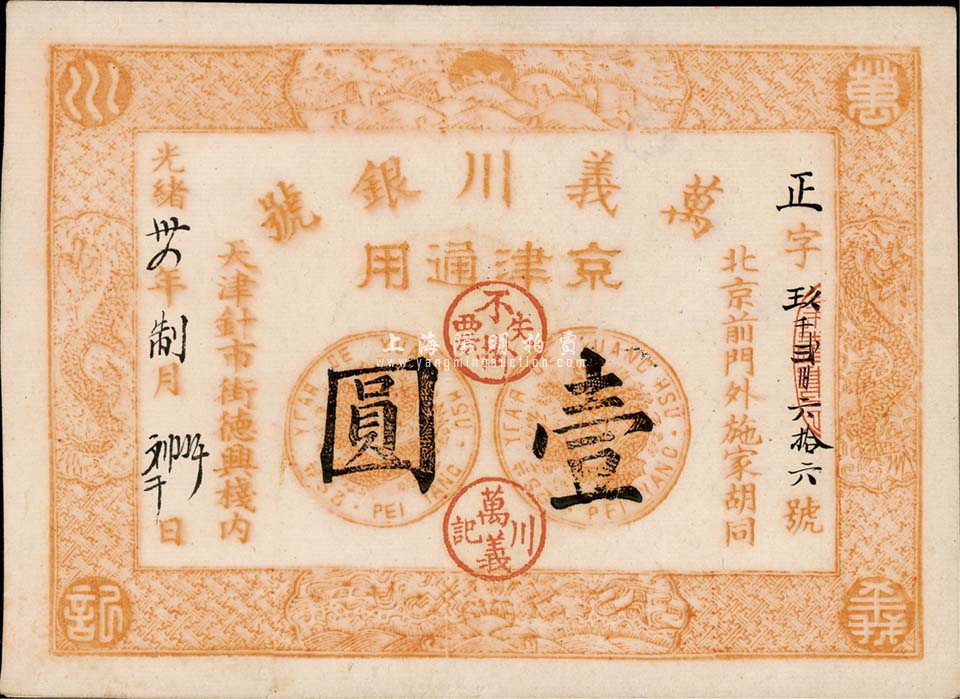 萬義川記
萬義川銀號
京津通用
正字玖千弍百六拾六號
北京前門外施家胡同
壹圓
天津針市街德興棧内
光緒卅年制月 日
失票不掛
萬義川記
PEI YANG
上海陽明拍賣
www.yangmingauction.com